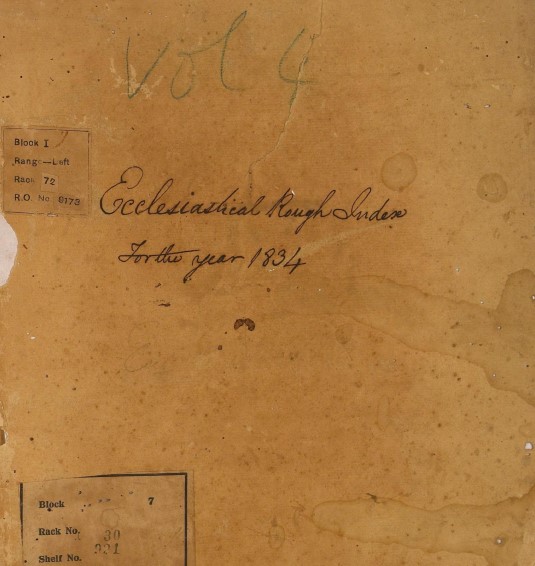 Vol 4
Block I
Range—Left
Rack 72
R.O. No 6173
Ecclesiastical Rough Index
For the year 1834
Block 7
Rack No. 30
Shelf No. 921